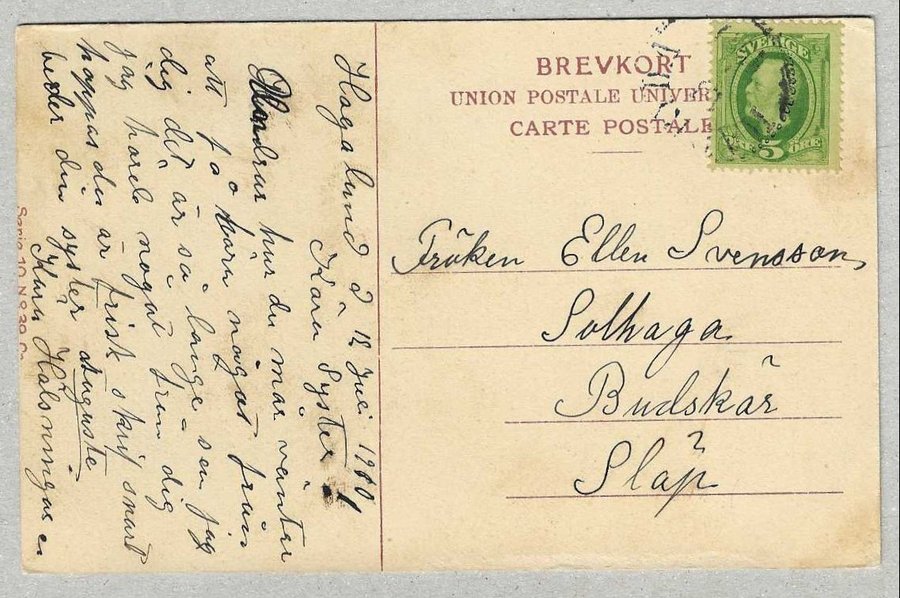 BREVKORT
UNION POSTALE UNIVER
CARTE POSTALE
SVERIGE
5 ÖRE
Fröken Ellen Svensson,
Solhaga
Budskär
Släp
Hagalund d 12 Juli 1910
Kära Syster!
Undrar hur du mar vänter
att få höra något från
dig det är så lange sen jag
jag hored nogot fron dig
hoppas du är frisk skrif snart
beder din syster Auguste
Kära Hälsningar
Serie 10 N